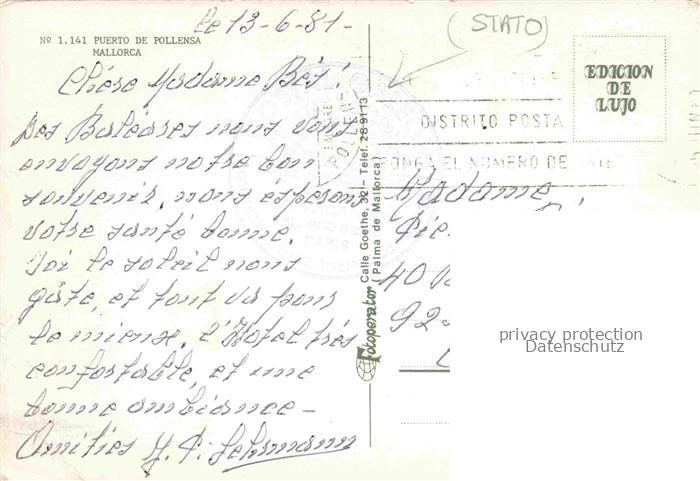 Le 13-6-81-
(STATO)
Nº 1.141 PUERTO DE POLLENSA
MALLORCA
EDICION
DE
LUJO
Chère Madame Bes!
Des Baléares nous vous
envoyons notre bon
souvenir, nous éspérons
votre santé bonne.
Ici le soleil nous
gâte, et tout va pour
le mieux. l'Hotel très
confortable, et une
bonne ambiance -
Amitiés Y. P. Lehmann
DISTRITO POSTA
PONGA EL NUMERO DE
Fotoperator Calle Goethe, 32 - Telef. 28 91 13
(Palma de Mallorca)
Madame
40
92
privacy protection
Datenschutz